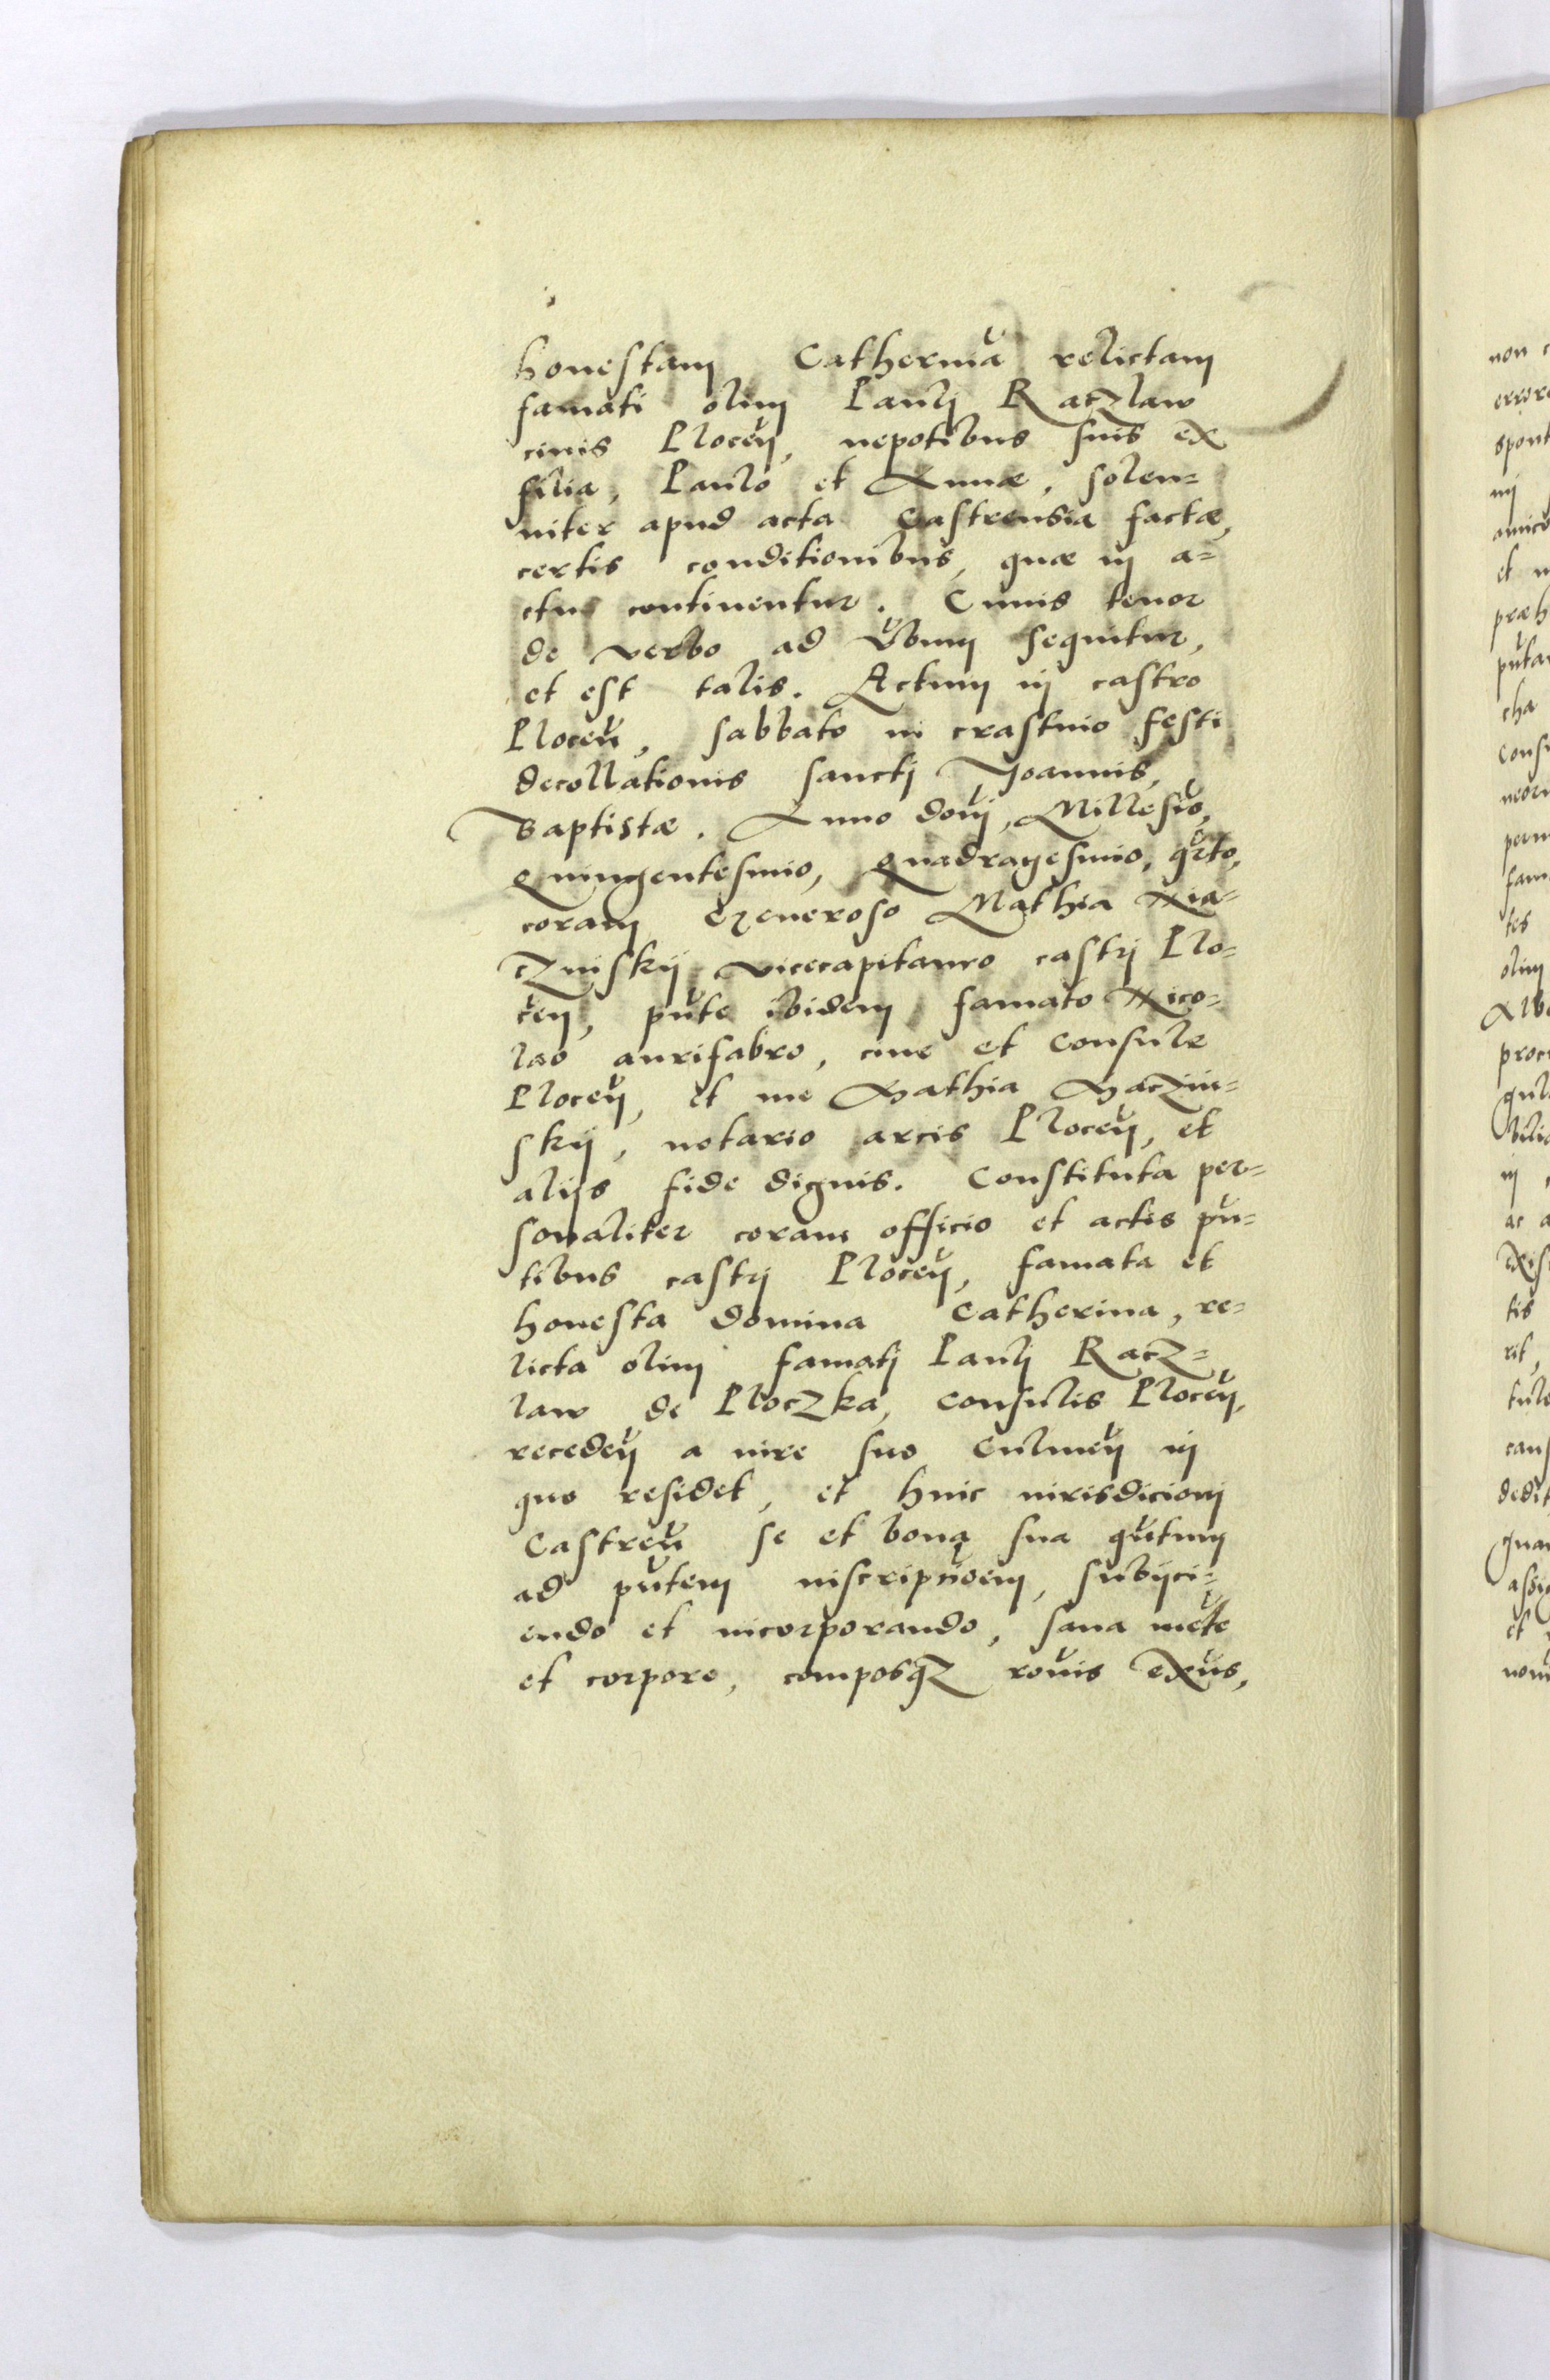 honestam Catherinā relictam
famati olim Pauli Raczlaw
ciuis Plocen̄, nepotibus suis ex
filia, Paulo et Annæ, solen=
niter apud acta Castrensia factæ,
certis conditionibus, quæ in a=
ctu continentur. Cuius tenor
de verbo ad v̄bum sequitur,
et est talis. Actum in castro
Plocen̄, sabbato in crastino festi
decollationis sancti Joannis,
Baptistæ. Anno dn̄i, Millesīo,
Quingentesimo, Quadragesimo, qr̄to,
coram Generoso Mathia Nia=
czinskij vicecapitaneo castri Plo=
cen̄, pn̄te ibidem famato Nico=
lao aurifabro, ciue et Consule
Plocen̄, et me Mathia Maczin=
skij, notario arcis Plocen̄, et
alijs fide dignis. Constituta per=
sonaliter coram officio et actis pn̄=
tibus castri Plocen̄, famata et
honesta domina Catherina, re=
licta olim famati Pauli Racz=
law de Ploczka, Consulis Plocen̄,
receden̄ a iure suo Culmen̄ in
quo residet, et huic iurisdicioni
Castren̄ se et bona sua qn̄tum
ad pn̄tem inscripn̄oem, subijci=
endo et incorporando, sana mēte
et corpore, composq̃ ron̄is exn̄s,
non
spont
in
et
præh
puta
cha
Cons
fam
tes
olim
Alb
proc
in
tis
rit,
dedit
et